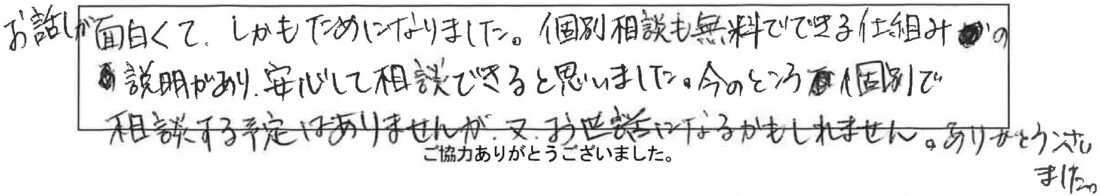 お話しが面白くて、しかもためになりました。個別相談も無料でできる仕組みの
説明があり、安心して相談できると思いました。今のところ個別で
相談する予定はありませんが、又、お世話になるかもしれません。ありがとうござい
ました。
ご協力ありがとうございました。